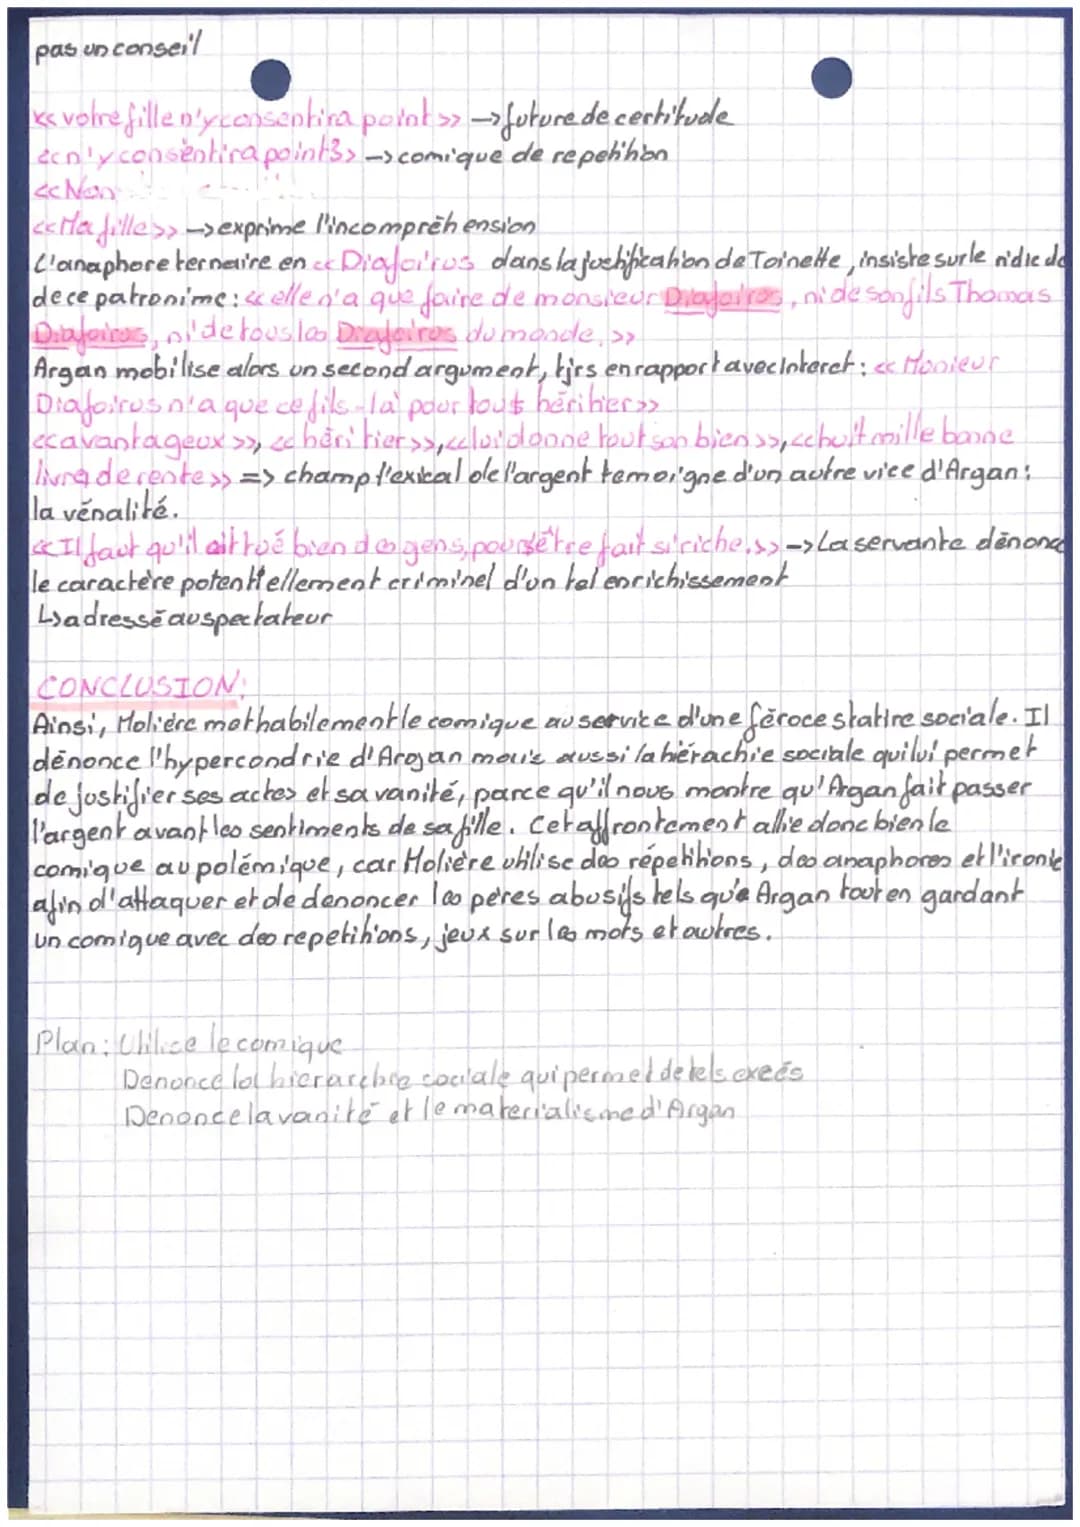 pas un conseil
<< votre fille n'y consentira point >> -> future de certitude
<< n'y consentira point3> -> comique de repetition
<< Non
<< Ma fille >> -> exprime l'incompréhension
L'anaphore ternaire en << Diafoirus dans la justification de Toinette, insiste sur le ridicule
de ce patronime : << elle n'a que faire de monsieur Diafoirus, ni de son fils Thomas
Diafoirus, ni de tous les Diafoirus du monde. >>
Argan mobilise alors un second argument, tjrs en rapport avec Interet : << Monieur
Diafoirus n'a que ce fils-là pour tout héritier >>
<< avantageux >>, << héritier >>, << lui donne tout son bien >>, << huit mille bonne
livre de rente >> => champ l'exical de l'argent temoigne d'un autre vice d'Argan :
la vénalité.
<< Il faut qu'il ait tué bien des gens, pour s'être fait si riche. >> -> La servante dénonce
le caractère potentiellement criminel d'un tel enrichissement
↳ adressé au spectateur
CONCLUSION:
Ainsi, Molière met habilement le comique au service d'une féroce statire sociale. Il
dénonce l'hypercondrie d'Argan mais aussi la hérachie sociale qui lui permet
de justifier ses actes et sa vanité, parce qu'il nous montre qu'Argan fait passer
l'argent avant les sentiments de sa fille. Cet affrontement allie donc bien le
comique au polémique, car Molière utilise des répétitions, des anaphores et l'ironie
afin d'attaquer et de denoncer les pères abusifs tels qu'e Argan tout en gardant
un comique avec des repetitions, jeux sur les mots et autres.
Plan : Utilise le comique
Denonce la hierarchie sociale qui permet de tels excés
Denonce la vanité et le materialisme d'Argan